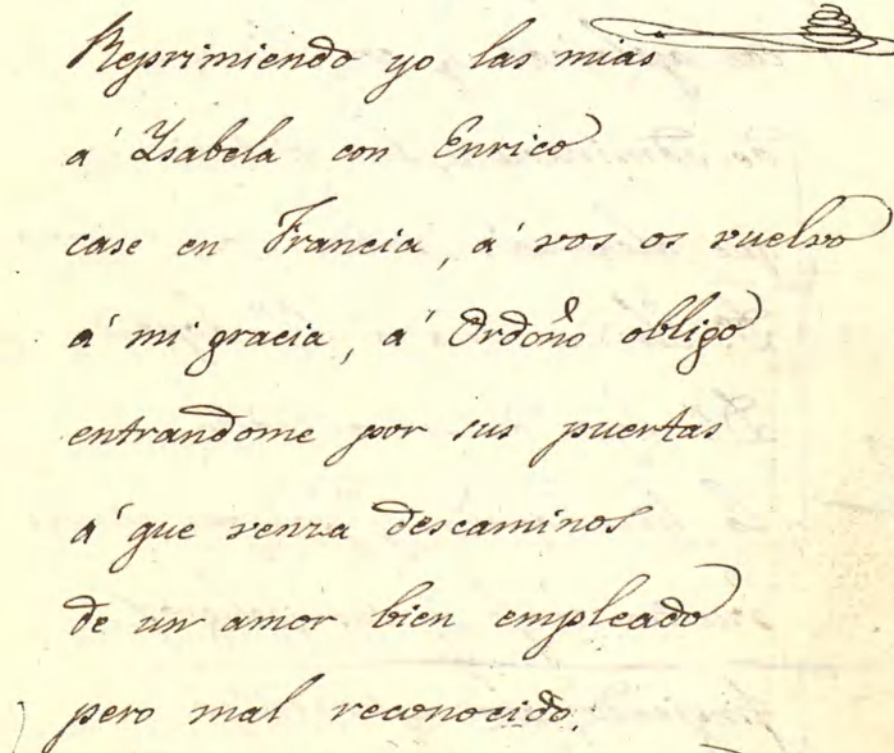 Reprimiendo yo las mias
á Ysabela con Enrico
case en Francia, á vos os vuelvo
á mi gracia, á Ordoño obligo
entrandome por sus puertas
á que venza descaminos
de un amor bien empleado
pero mal reconocido;